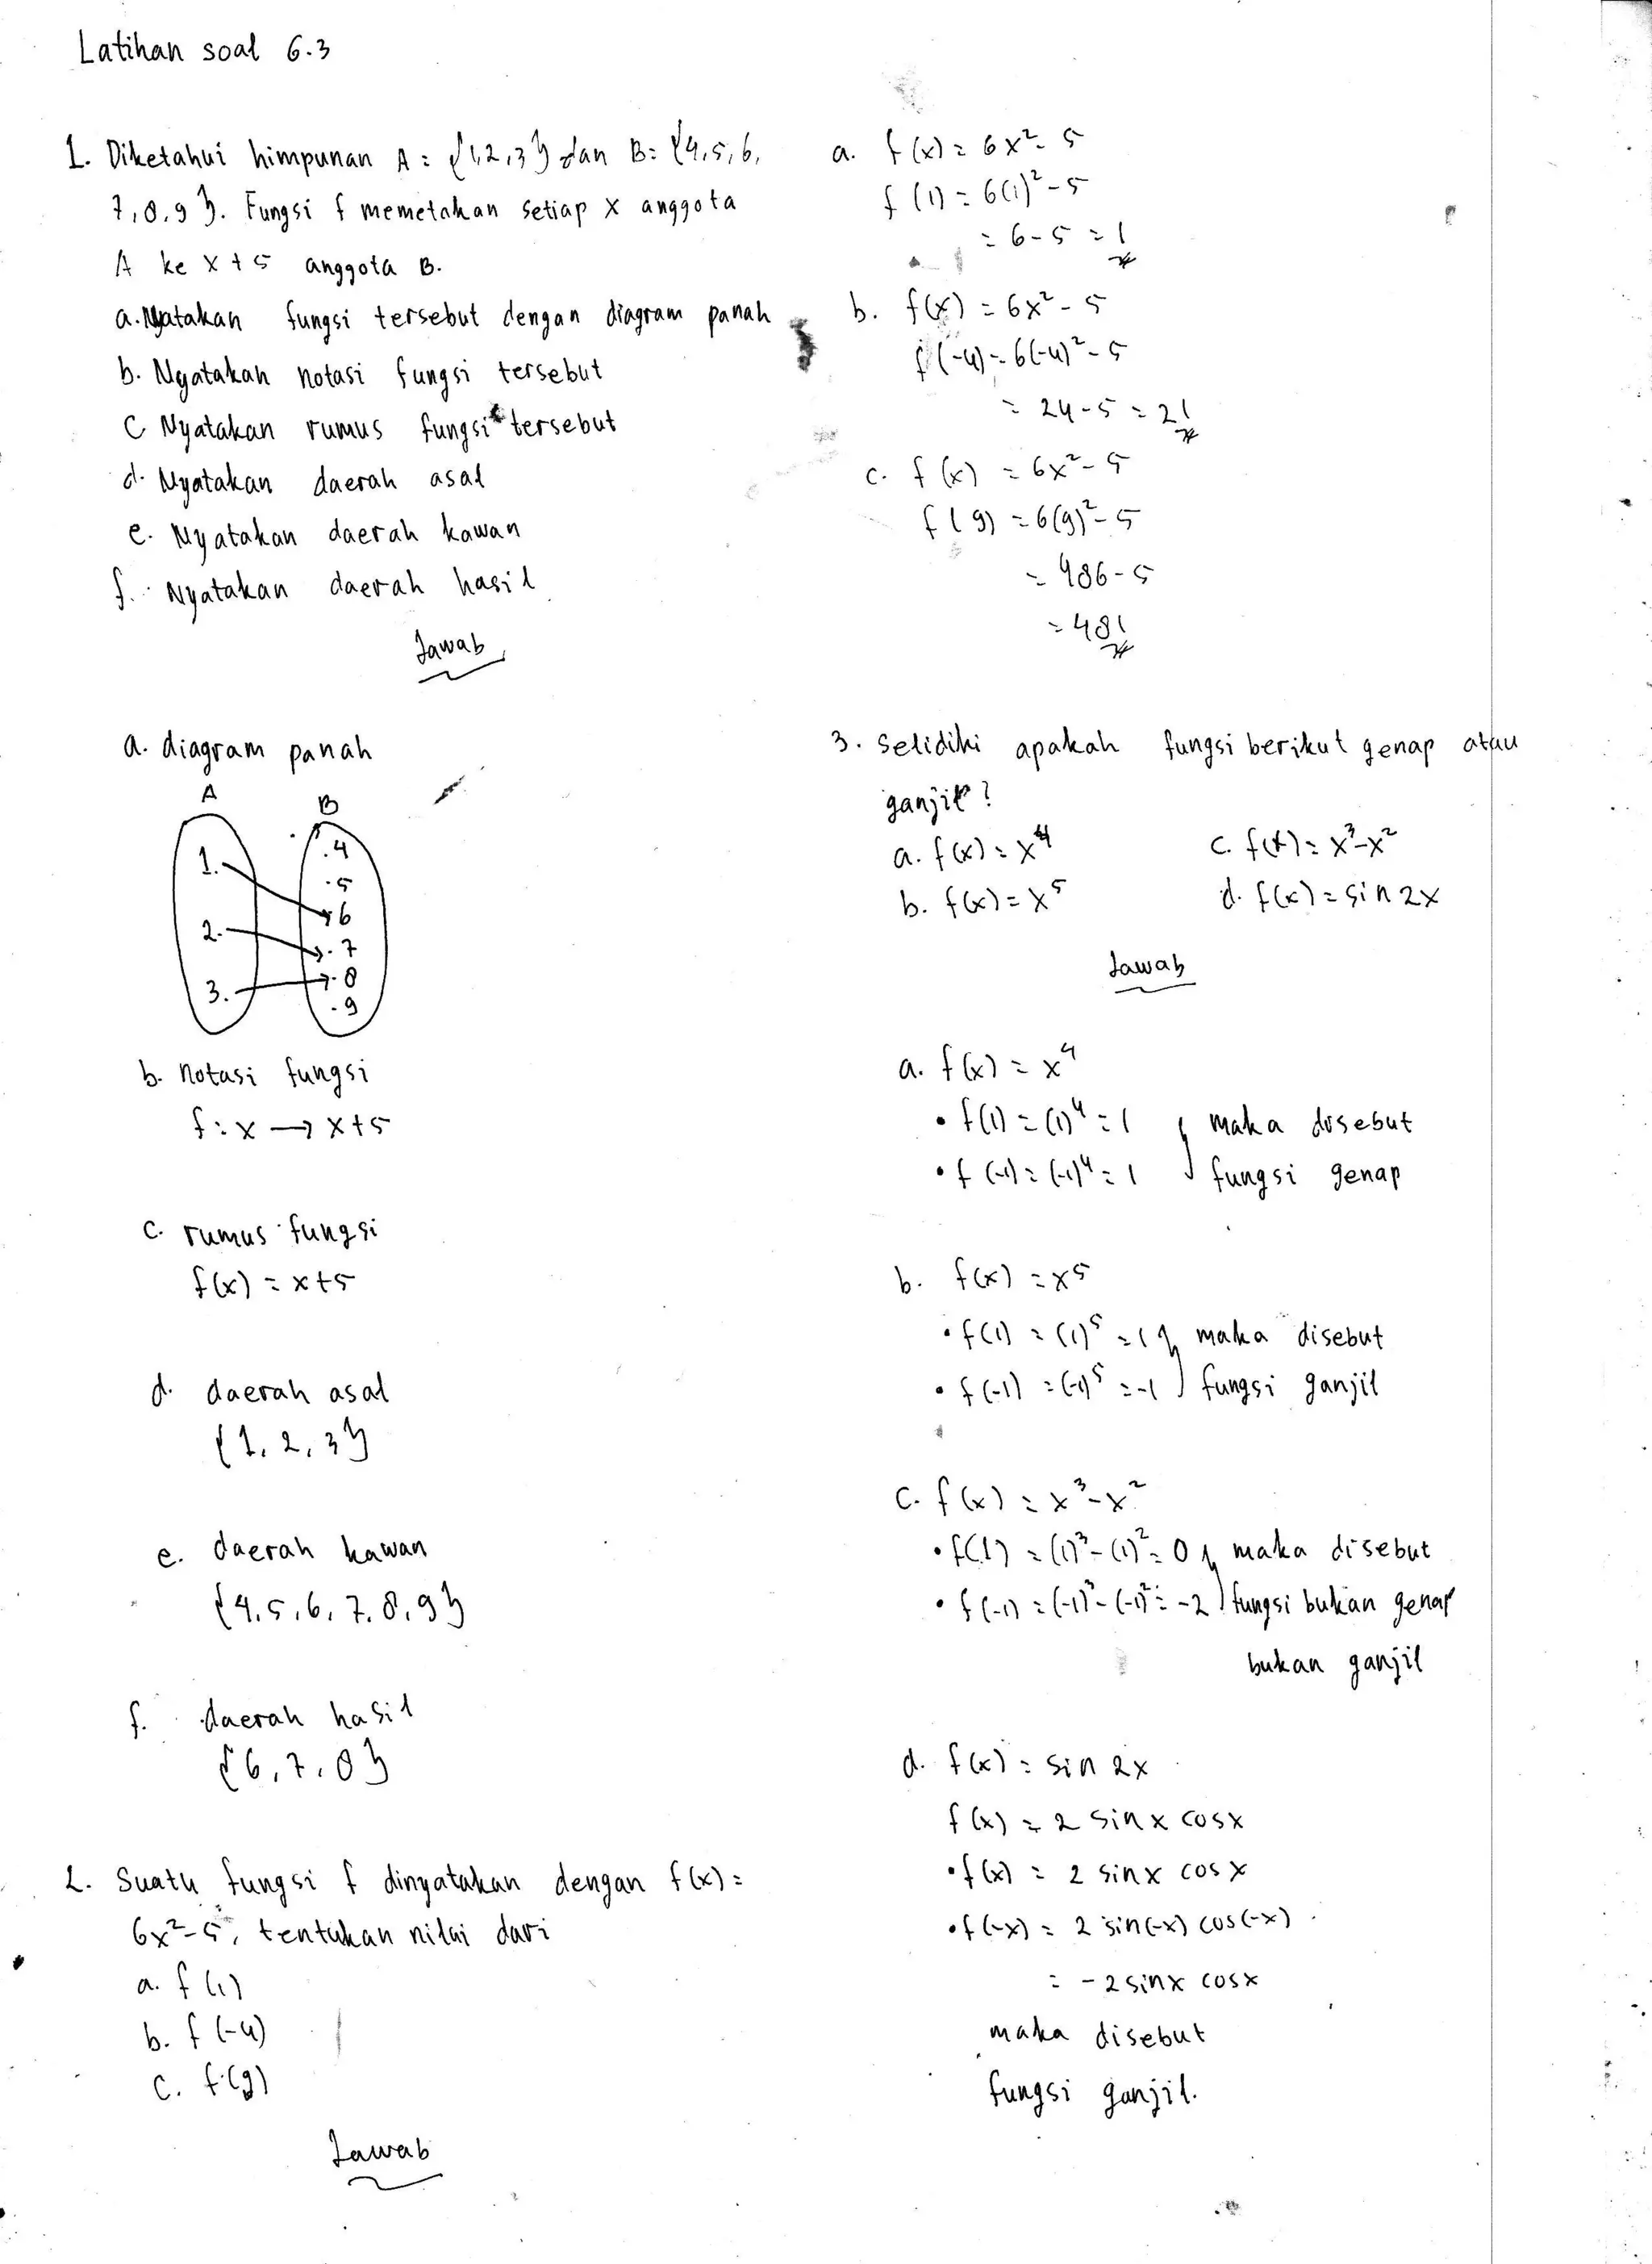 Latihan soal 6.3
1. Diketahui himpunan A = {1,2,3} dan B = {4,5,6,
7,8,9}. Fungsi f memetakan setiap x anggota
A ke x + 5 anggota B.
a. Nyatakan fungsi tersebut dengan diagram panah
b. Nyatakan notasi fungsi tersebut
c Nyatakan rumus fungsi tersebut
d. Nyatakan daerah asal
e. Nyatakan daerah kawan
f. Nyatakan daerah hasil
Jawab
a. diagram panah
A
B
1.
2.
3.
.4
.5
6
.7
.8
.9
b. notasi fungsi
f : x → x+5
c. rumus fungsi
f(x) = x+5
d. daerah asal
{1, 2, 3}
e. daerah kawan
{4, 5, 6, 7, 8, 9}
f. daerah hasil
{6, 7, 8}
2. Suatu fungsi f dinyatakan dengan f(x) =
6x²-5, tentukan nilai dari
a. f(1)
b. f(-4)
c. f(9)
Jawab
a. f(x) = 6x²-5
f(1) = 6(1)²-5
= 6-5 = 1
b. f(x) = 6x²-5
f(-4) = 6(-4)²-5
= 24-5 = 21
c. f(x) = 6x²-5
f(9) = 6(9)²-5
= 486-5
= 481
3. Selidiki apakah fungsi berikut genap atau
ganjil?
a. f(x) = x⁴ c. f(x) = x³-x²
b. f(x) = x⁵ d. f(x) = sin 2x
Jawab
a. f(x) = x⁴
• f(1) = (1)⁴ = 1 } maka disebut
• f(-1) = (-1)⁴ = 1 fungsi genap
b. f(x) = x⁵
• f(1) = (1)⁵ = 1 } maka disebut
• f(-1) = (-1)⁵ = -1 fungsi ganjil
c. f(x) = x³-x²
• f(1) = (1)³-(1)² = 0 } maka disebut
• f(-1) = (-1)³-(-1)² = -2 fungsi bukan genap
bukan ganjil
d. f(x) = sin 2x
f(x) = 2 sin x cos x
• f(x) = 2 sin x cos x
• f(-x) = 2 sin(-x) cos(-x)
= -2 sin x cos x
maka disebut
fungsi ganjil.